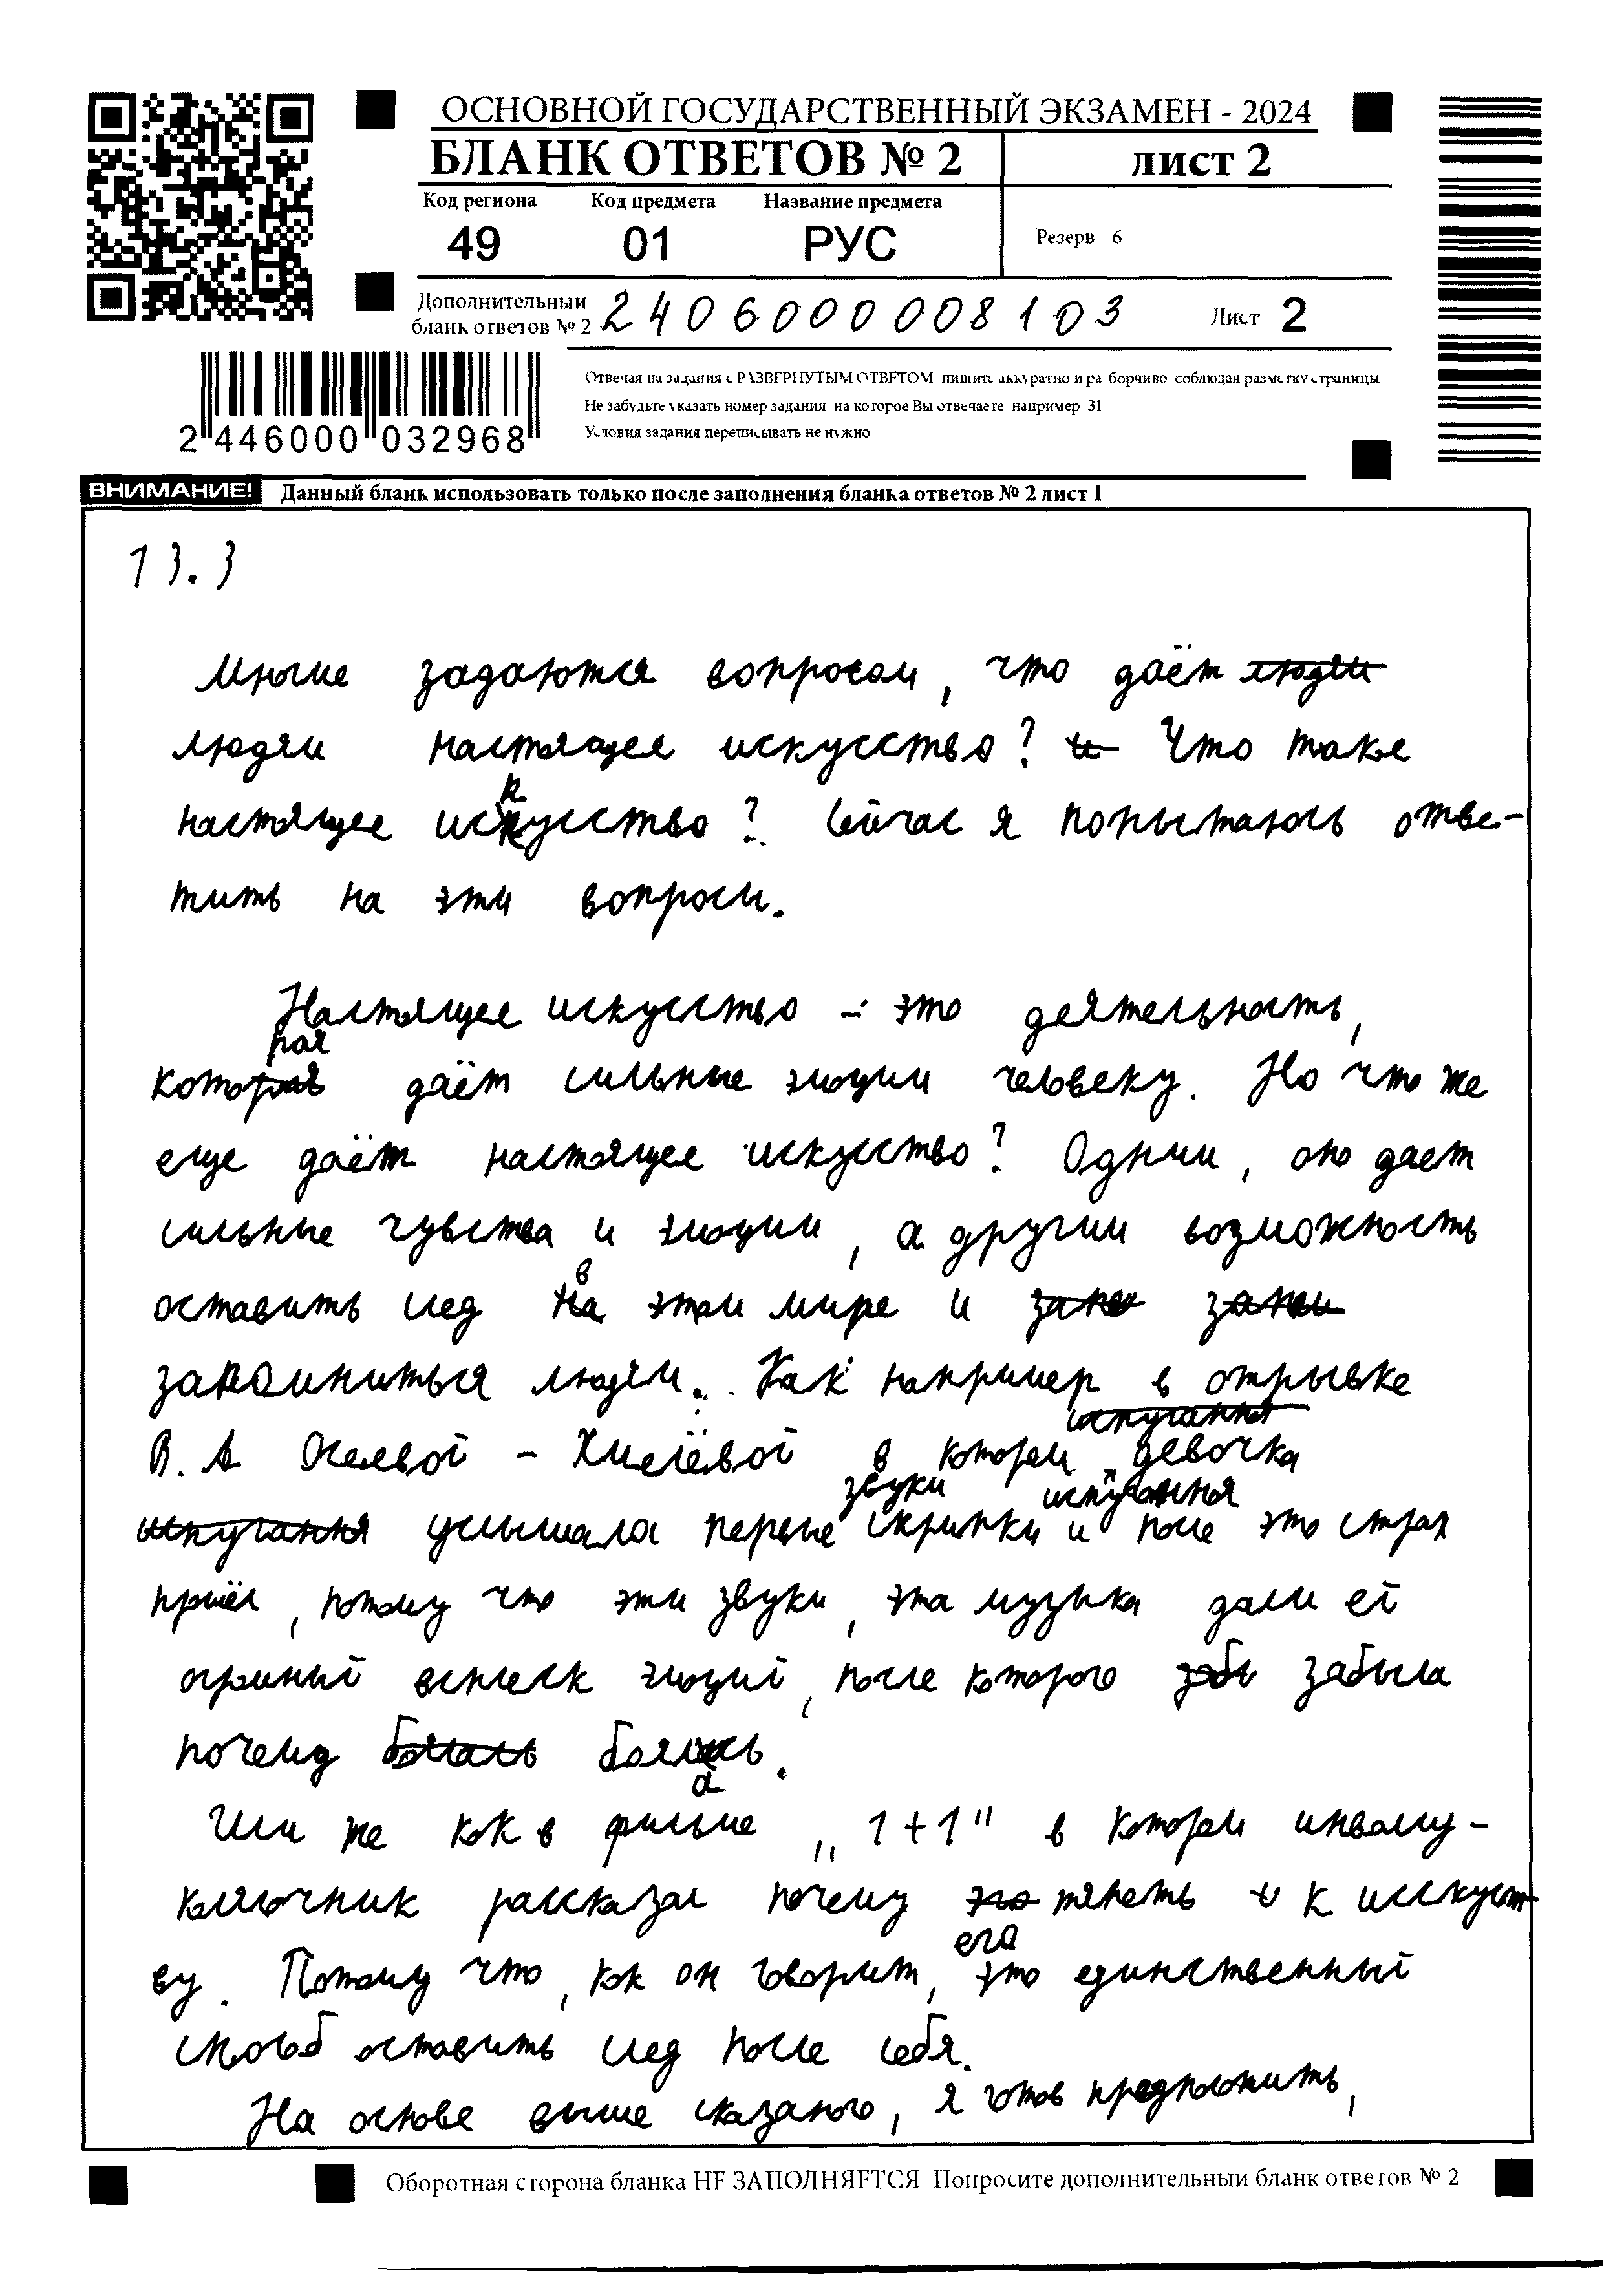 ОСНОВНОЙ ГОСУДАРСТВЕННЫЙ ЭКЗАМЕН - 2024
БЛАНК ОТВЕТОВ № 2 лист 2
Код региона Код предмета Название предмета
49 01 РУС Резерв 6
Дополнительный
бланк ответов № 2 2406000008103 Лист 2
Отвечая на задания с РАЗВЕРНУТЫМ ОТВЕТОМ пишите аккуратно и разборчиво соблюдая разметку страницы
Не забудьте указать номер задания на которое Вы отвечаете например 31
Условия задания переписывать не нужно
2 446000 032968
ВНИМАНИЕ! Данный бланк использовать только после заполнения бланка ответов № 2 лист 1
13.3
Многие задаются вопросом, что даёт людям
людям настоящее искусство? и Что такое
настоящее искусство? Сейчас я попытаюсь отве-
тить на эти вопросы.
Настоящее искусство - это деятельность,
которая даёт сильные эмоции человеку. Но что же
еще даёт настоящее искусство? Одним, оно дает
сильные чувства и эмоции, а другим возможность
оставить след в этом мире и
запомниться людям. Как например в отрывке
В. А Осеевой - Хмелёвой в котором девочка
испугання услышала первые звуки скрипки и после это страх
прошёл, потому что эти звуки, эта музыка дали ей
огромный всплеск эмоций, после которого забыла
почему боялась.
Или же как в фильме „1+1" в котором инвалид-
колясочник рассказал почему его тянеть к исскуст-
ву. Потому что, как он говорит, это единственный
способ оставить след после себя.
На основе выше сказаного, я готов предположить,
Оборотная сторона бланка НЕ ЗАПОЛНЯЕТСЯ Попросите дополнительный бланк ответов № 2